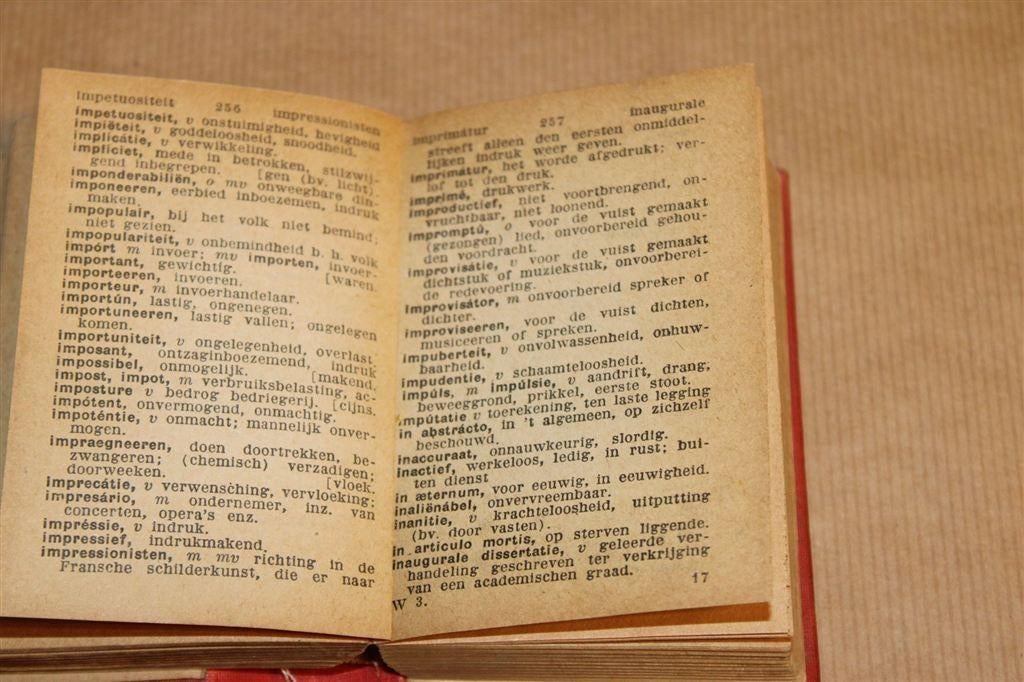 impetuositeit 256 impressionisten
impetuositeit, v onstuimigheid, hevigheid
impiëteit, v goddeloosheid, snoodheid.
implicátie, v verwikkeling.
impliciet, mede in betrokken, stilzwij-
gend inbegrepen. [gen (bv. licht).
imponderabiliën, o mv onweegbare din-
imponeeren, eerbied inboezemen, indruk
maken.
impopulair, bij het volk niet bemind;
niet gezien.
impopulariteit, v onbemindheid b. h. volk
impórt m invoer; mv importen, invoer-
important, gewichtig. [waren.
importeeren, invoeren.
importeur, m invoerhandelaar.
importún, lastig, ongenegen.
importuneeren, lastig vallen; ongelegen
komen.
importuniteit, v ongelegenheid, overlast
imposant, ontzaginboezemend, indruk
impossibel, onmogelijk. [makend.
impost, impot, m verbruiksbelasting, ac-
imposture v bedrog bedriegerij. [cijns.
impótent, onvermogend, onmachtig.
impoténtie, v onmacht; mannelijk onver-
mogen.
impraegneeren, doen doortrekken, be-
zwangeren; (chemisch) verzadigen;
doorweeken. [vloek.
imprecátie, v verwensching, vervloeking;
impresário, m ondernemer, inz. van
concerten, opera's enz.
impréssie, v indruk.
impressief, indrukmakend.
impressionisten, m mv richting in de
Fransche schilderkunst, die er naar
imprimátur 257 inaugurale
streeft alleen den eersten onmiddel-
lijken indruk weer geven.
imprimátur, het worde afgedrukt; ver-
lof tot den druk.
imprimé, drukwerk.
improductief, niet voortbrengend, on-
vruchtbaar, niet loonend.
impromptú, o voor de vuist gemaakt
(gezongen) lied, onvoorbereid gehou-
den voordracht.
improvisátie, v voor de vuist gemaakt
dichtstuk of muziekstuk, onvoorberei-
de redevoering.
improvisátor, m onvoorbereid spreker of
dichter.
improviseeren, voor de vuist dichten,
musiceeren of spreken.
impuberteit, v onvolwassenheid, onhuw-
baarheid.
impudentie, v schaamteloosheid.
impúls, m impúlsie, v aandrift, drang,
beweeggrond, prikkel, eerste stoot.
imputátie v toerekening, ten laste legging
in abstrácto, in 't algemeen, op zichzelf
beschouwd.
inaccuraat, onnauwkeurig, slordig.
inactief, werkeloos, ledig, in rust; bui-
ten dienst
in æternum, voor eeuwig, in eeuwigheid.
inaliënábel, onvervreembaar.
inanitie, v krachteloosheid, uitputting
(bv. door vasten).
in articulo mortis, op sterven liggende.
inaugurale dissertatie, v geleerde ver-
handeling geschreven ter verkrijging
van een academischen graad.
W 3. 17